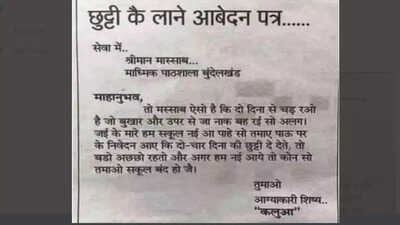 छुट्टी कै लाने आबेदन पत्र......
सेवा में..
श्रीमान मास्साब...
माध्मिक पाठशाला बुंदेलखंड
माहानुभव,
तो मस्साब ऐसो है कि दो दिना से चड़ रओ
है जो बुखार और उपर से जा नाक बह रई सो अलग।
जई के मारे हम सकूल नई आ पाहे सो तमाए पाऊ पर
के निवेदन आए कि दो-चार दिना की छुट्टी दे देते, तो
बडो अछ्छो रहतो और अगर हम नई आये तो कोन सो
तमाओ सकूल बंद हो जै।
तुमाओ
आग्याकारी शिष्य..
"कलुआ"